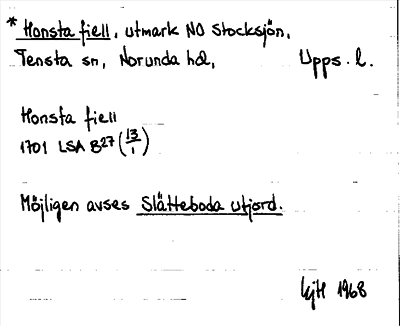 * Honsta fiell, utmark NO Stocksjön,
Tensta sn, Norunda hd, Upps. l.
Honsta fiell
1701 LSA B27 (13/1)
Möjligen avses Slätteboda utjord.
1968